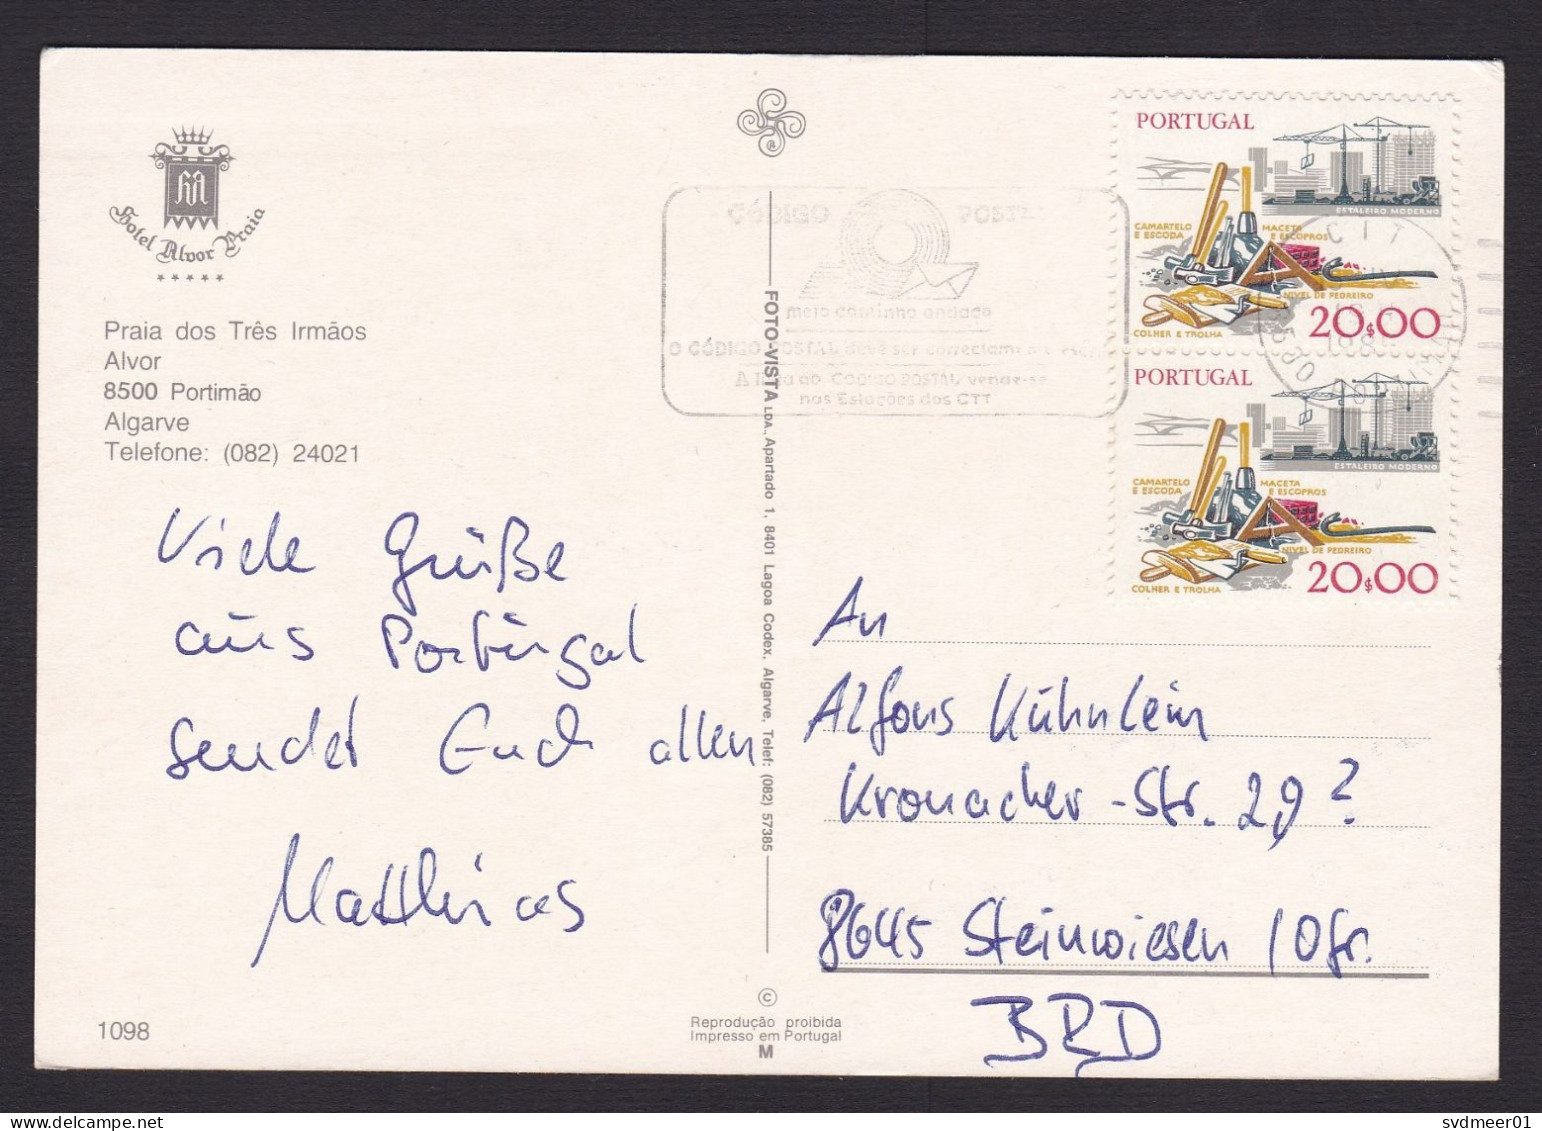 Hotel Alvor Praia
*****
Praia dos Três Irmãos
Alvor
8500 Portimão
Algarve
Telefone: (082) 24021
Viele Grüße
aus Portugal
sendet Euch allen
Matthias
1098
FOTO-VISTA LDA., Apartado 1, 8401 Lagoa Codex, Algarve, Telef: (082) 57385
©
Reprodução proibida
Impresso em Portugal
M
CÓDIGO POSTAL
meio caminho andado
O CÓDIGO POSTAL deve ser
CODIGO POSTAL vende-se
nas Estações dos CTT
CTT
PORTUGAL
ESTALEIRO MODERNO
CAMARTELO E ESCODA
MACETA E ESCOPROS
NIVEL DE PEDREIRO
COLHER E TROLHA
20$00
PORTUGAL
ESTALEIRO MODERNO
CAMARTELO E ESCODA
MACETA E ESCOPROS
NIVEL DE PEDREIRO
COLHER E TROLHA
20$00
An
Alfons Kühnlein
Kronacher-Str. 29?
8645 Steinwiesen / Ofr.
BRD
svdmeer01